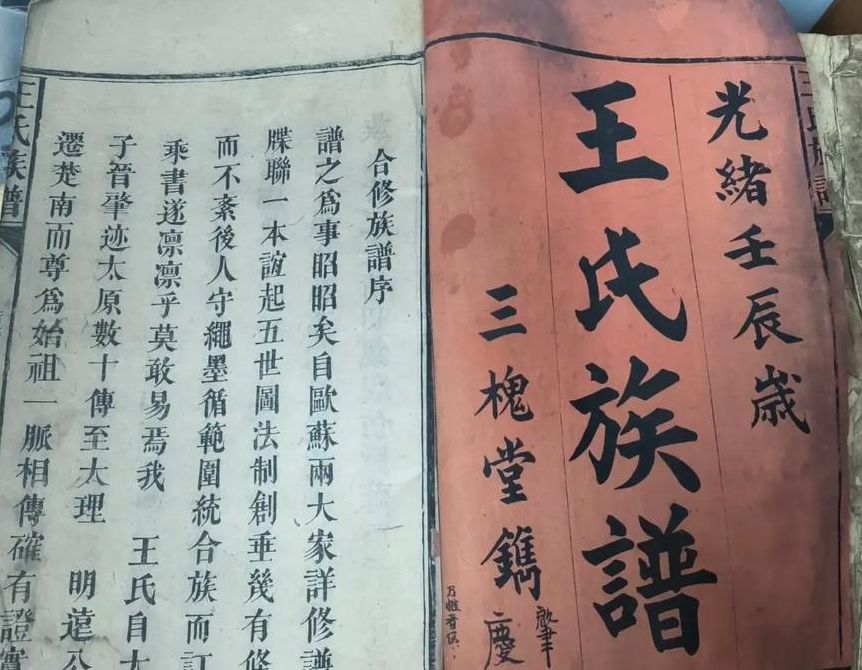 光緒壬辰歲
王氏族譜
三槐堂鐫
慶
王氏族譜
合修族譜序
譜之爲事昭昭矣自歐蘇兩大家詳修譜
牒聯一本誼起五世圖法制創垂幾有修
而不紊後人守繩墨循範圍統合族而訂
乘書遂凛凛乎莫敢易焉我 王氏自太
子晉肇迹太原數十傳至大理 明遠公
遷楚南而尊爲始祖一脈相傳確有證實
王氏族譜